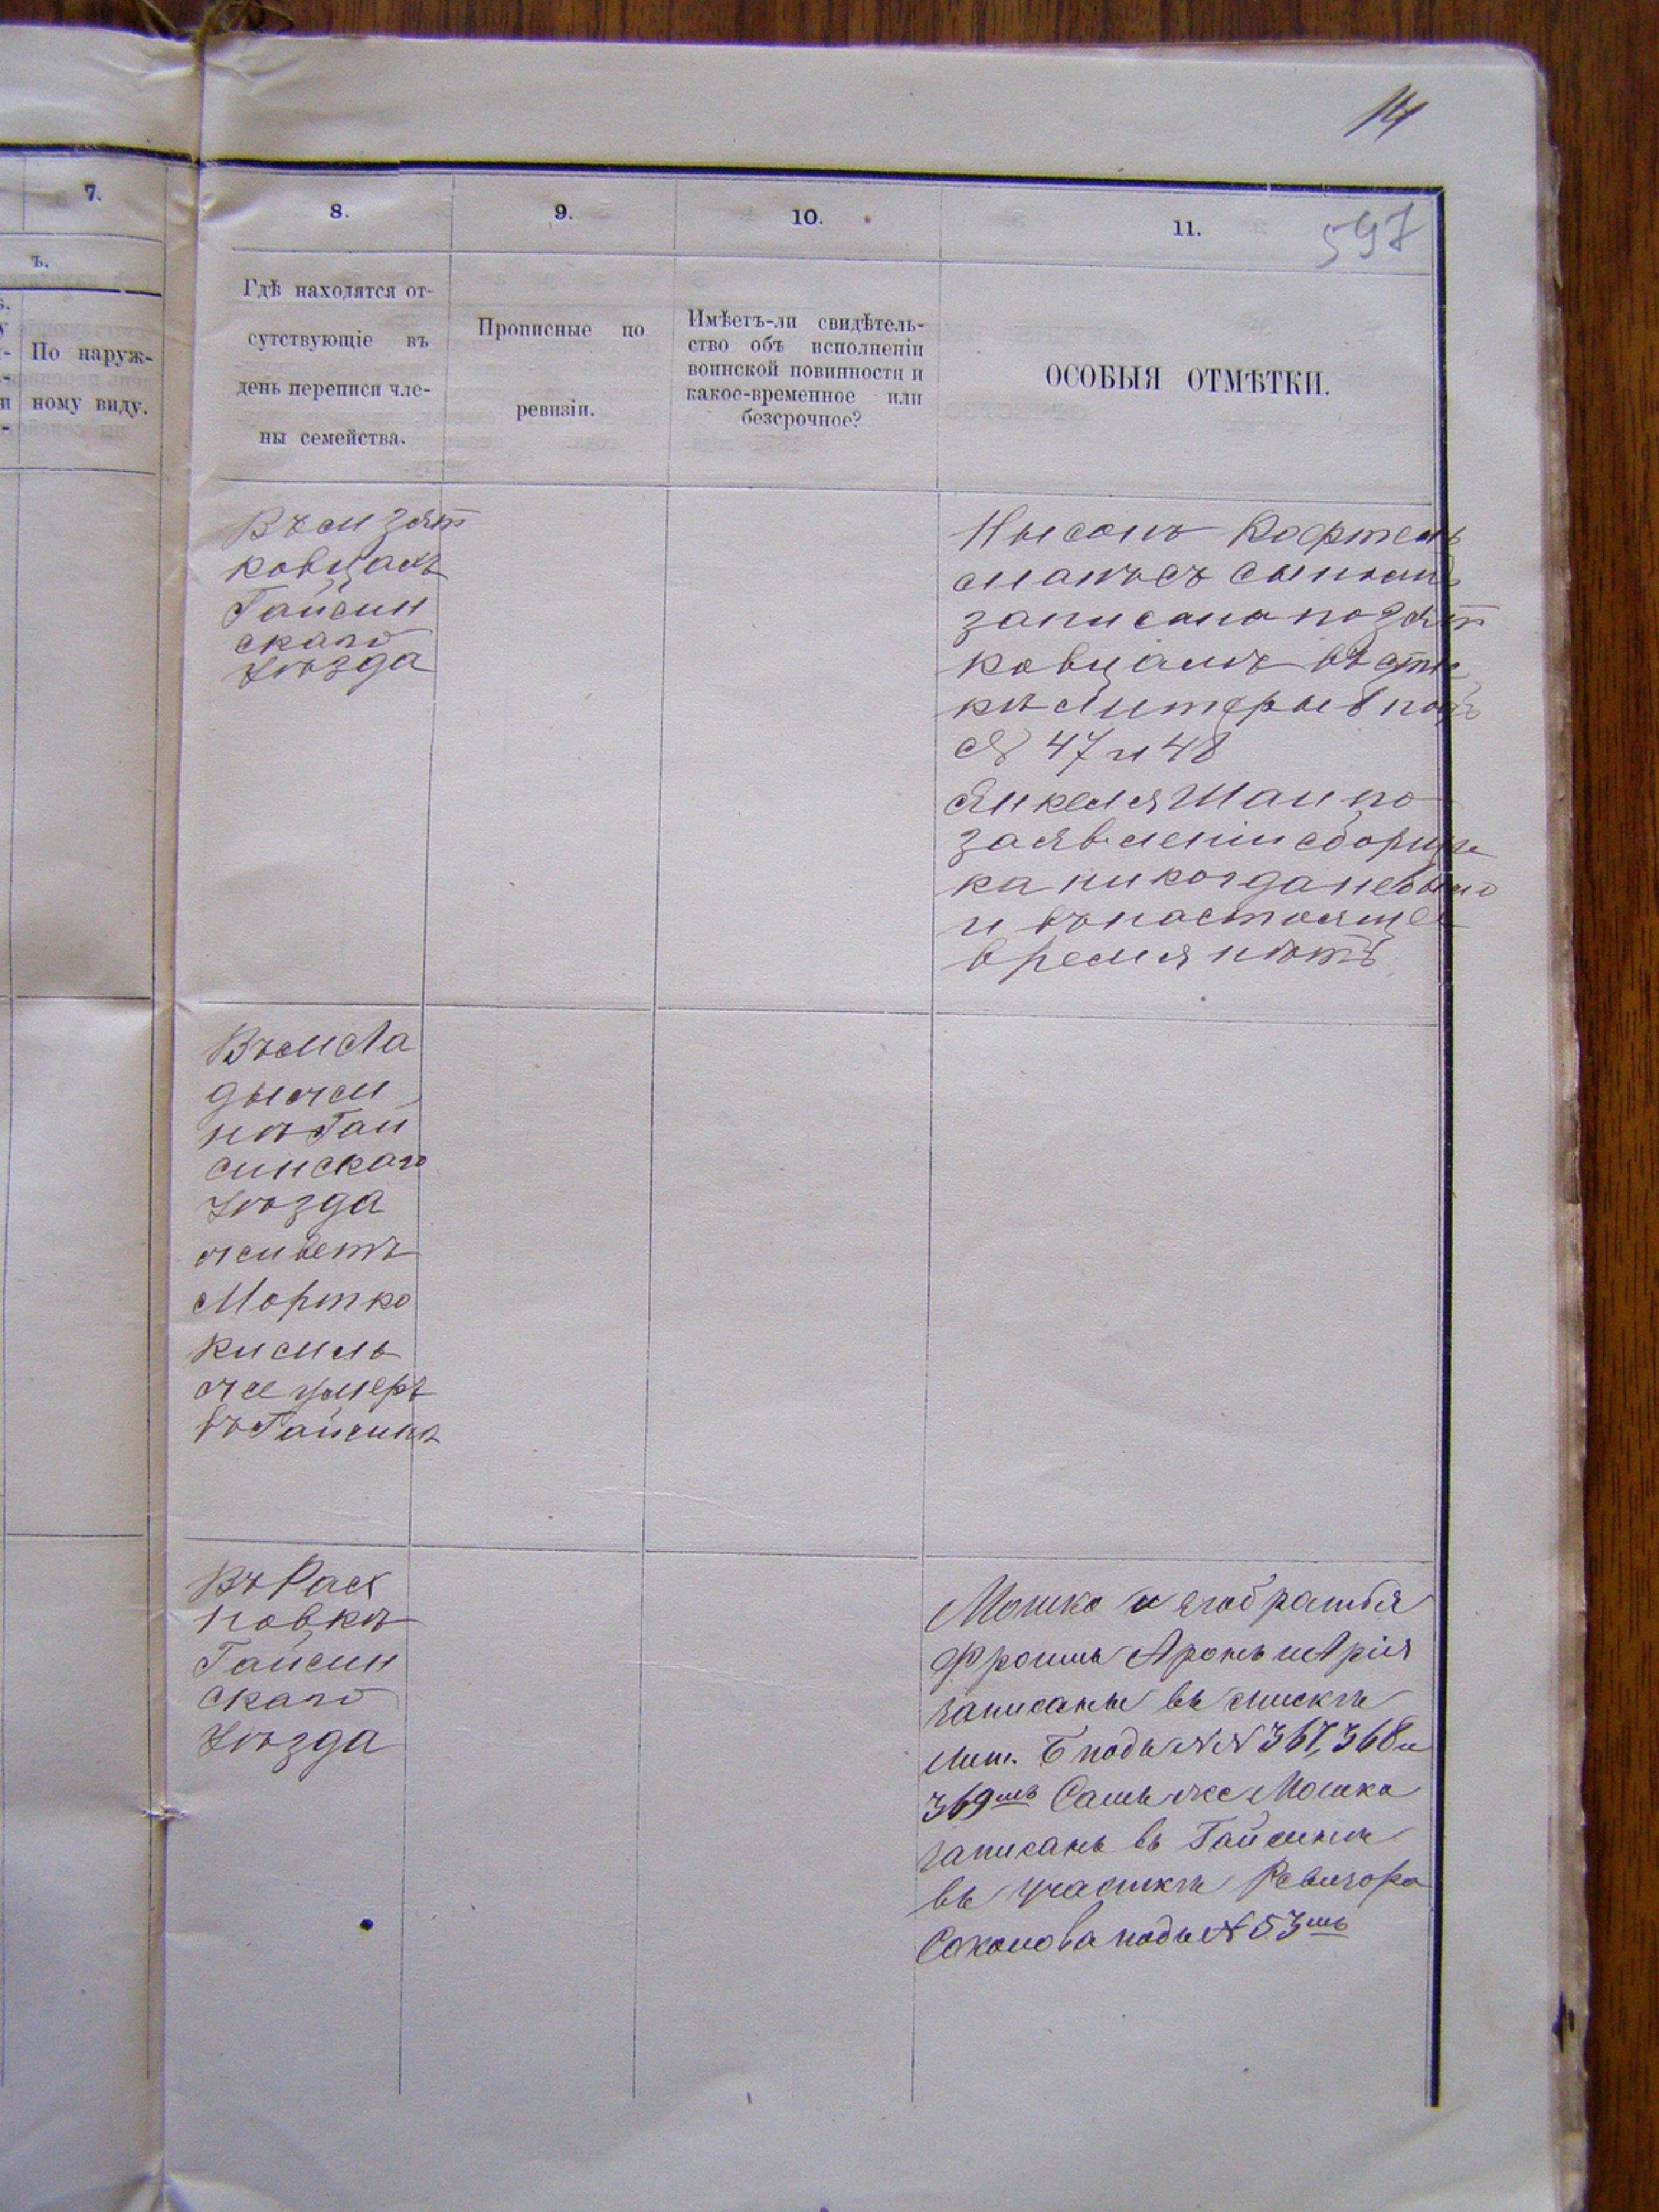 14
7.
8.
9.
10.
11.
597
ъ.
По наруж-
ному виду.
Гдѣ находятся от-
сутствующіе въ
день переписи чле-
ны семейства.
Прописные по
ревизіи.
Имѣетъ-ли свидѣтель-
ство объ исполненіи
воинской повинности и
какое-временное или
безсрочное?
ОСОБЫЯ ОТМѢТКИ.
Въ м Зят
ковцахъ
Гайсин
скаго
уѣзда
Нысонъ
съ сыномъ
записанъ по Зят
ковцамъ въ
литеры в подъ
№ 47 и 48
Янкеля Шаи по
заявленію сборщи
ка никогда небыло
и въ настоящее
время нѣтъ
Въ м Ла
дыжи
нѣ Гай
синскаго
уѣзда
живетъ
Мортко
Кисиль
же умеръ
въ Гайсинѣ
Въ Рах
новкѣ
Гайсин
скаго
уѣзда
Мошко и его братья
Фроимъ Аронъ и Арія
записаны въ спискѣ
лит. Б подъ №№ 367, 368 и
369мъ Самъ же Мошко
записанъ въ Гайсинѣ
въ участкѣ Ревизора
Соколова подъ № 53мъ